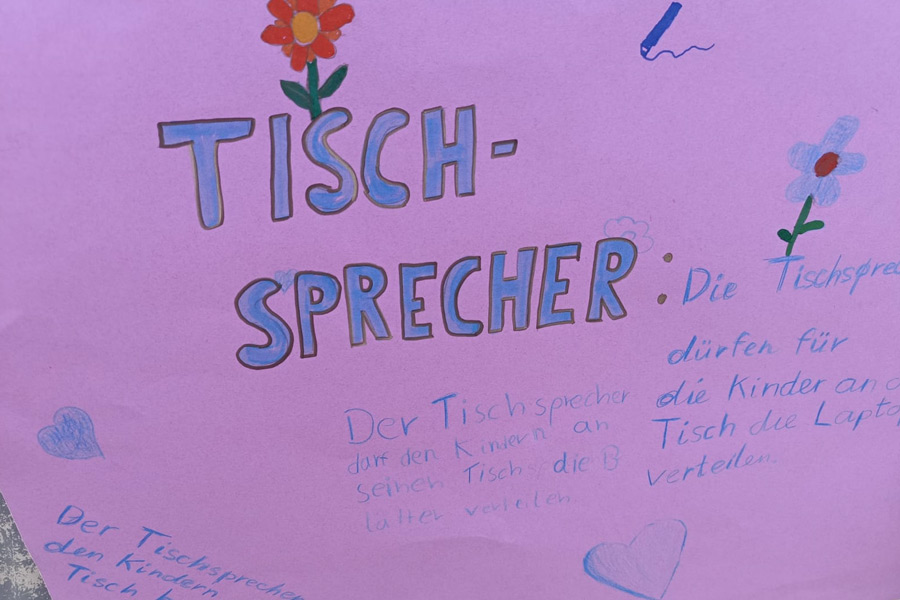 TISCH-
SPRECHER:
Die Tischsprec
dürfen für
die Kinder an
Tisch die Lapto
verteilen.
Der Tischsprecher
darf den Kindern an
seinen Tisch die B
lätter verteilen.
Der Tischsprecher
den Kindern
Tisch